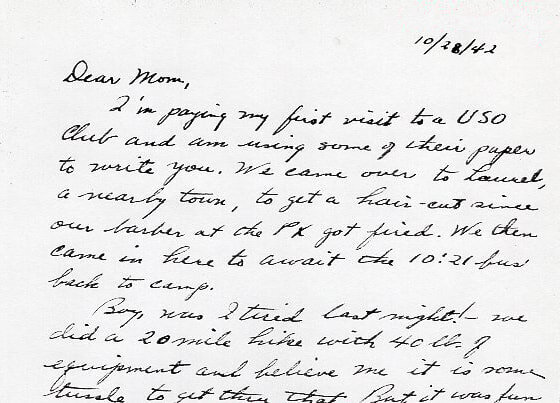 10/28/42
Dear Mom,
I'm paying my first visit to a USO
Club and am using some of their paper
to write you. We came over to Laurel,
a nearby town, to get a hair-cut since
our barber at the PX got fired. We then
came in here to await the 10:21 bus
back to camp.
Boy, was I tired last night! - we
did a 20 mile hike with 40 lb. of
equipment and believe me it is some
tussle to get thru that. But it was fun